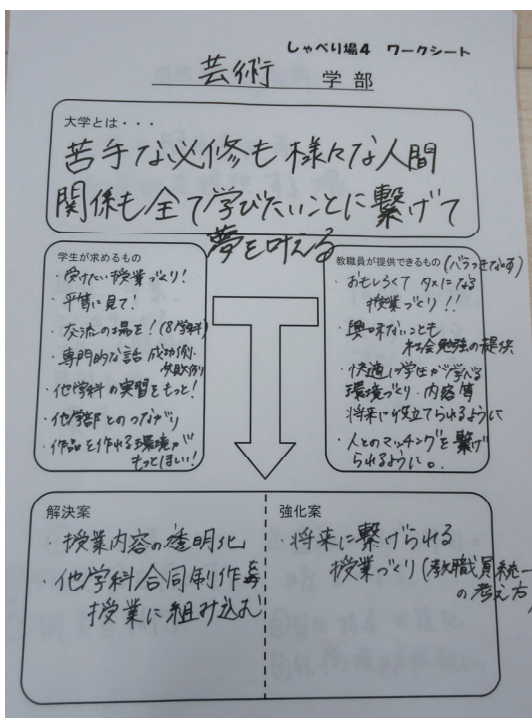 しゃべり場4 ワークシート
芸術 学部
大学とは・・・
苦手な必修も様々な人間
関係も全て学びたいことに繋げて
夢を叶える
学生が求めるもの
・受けたい授業づくり!
・平等に見て!
・交流の場を!(8学科)
・専門的な話 成功例・
失敗例
・他学科の実習をもっと!
・他学部とのつながり
・作品を作れる環境が
もっとほしい!
教職員が提供できるもの(バラつきなくす)
・おもしろくてタメになる
授業づくり!!
・興味ないことも
社会勉強の提供
・快適に学生が学べる
環境づくり・内容等
将来に役立てられるように
・人とのマッチングを繋げ
られるように。
解決案
・授業内容の透明化
・他学科合同制作等
授業に組み込む
強化案
・将来に繋げられる
授業づくり(教職員統一
の考え方